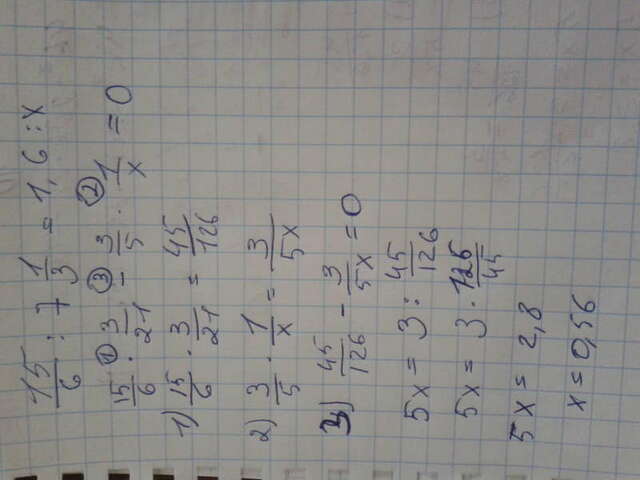 15/6 : 7 1/3 = 1,6 : x
① ③ ②
15/6 · 3/21 - 3/5 · 1/x = 0
1) 15/6 · 3/21 = 45/126
2) 3/5 · 1/x = 3/5x
3) 45/126 - 3/5x = 0
5x = 3 : 45/126
5x = 3 · 126/45
5x = 2,8
x = 0,56